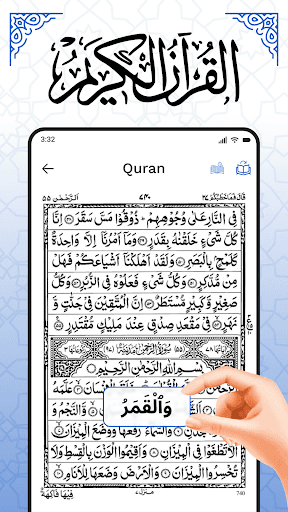 اَلْقُرْآنُ الْكَرِيْمُ
3:32
Quran
قَالَ فَمَا خَطْبُكُمْ ٢٧
اَلرَّحْمٰن ٥٥
فِي النَّارِ عَلٰى وُجُوْهِهِمْ ذُوْقُوْا مَسَّ سَقَرَ اِنَّا
كُلَّ شَيْءٍ خَلَقْنٰهُ بِقَدَرٍ وَمَآ اَمْرُنَآ اِلَّا وَاحِدَةٌ
كَلَمْحٍۭ بِالْبَصَرِ وَلَقَدْ اَهْلَكْنَآ اَشْيَاعَكُمْ فَهَلْ
مِنْ مُّدَّكِرٍ وَكُلُّ شَيْءٍ فَعَلُوْهُ فِي الزُّبُرِ وَكُلُّ
صَغِيْرٍ وَّكَبِيْرٍ مُّسْتَطَرٌ اِنَّ الْمُتَّقِيْنَ فِيْ جَنّٰتٍ وَّ
نَهَرٍ فِيْ مَقْعَدِ صِدْقٍ عِنْدَ مَلِيْكٍ مُّقْتَدِرٍ
سُوْرَةُ الرَّحْمٰنِ
بِسْمِ اللهِ الرَّحْمٰنِ الرَّحِيْمِ
عَلَّمَهُ
وَالْقَمَرُ
وَّالنَّجْمُ وَ
وَالسَّمَآءَ رَفَعَهَا وَوَضَعَ الْمِيْزَانَ
اَلَّا تَطْغَوْا فِي الْمِيْزَانِ وَاَقِيْمُوا الْوَزْنَ
تُخْسِرُوا الْمِيْزَانَ وَالْاَرْضَ وَضَعَهَا لِلْاَنَامِ
فِيْهَا فَاكِهَةٌ
740